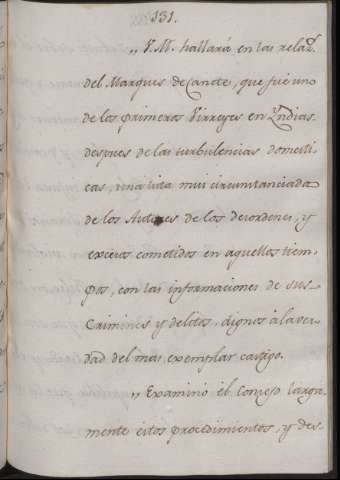 131.
,, V. M. hallará en las relaz.^s
del Marques de Canete, que fue uno
de los primeros Virreyes en Yndias
despues de las turbulencias domesti-
cas, una lista mui circunstanciada
de los Autores de los desordenes, y
excesos cometidos en aquellos tiem-
pos, con las informaciones de sus
Crimines y delitos, dignos à la ver-
dad del mas exemplar castigo.
,, Examinó el Consejo larga-
mente estos procedimientos, y des-